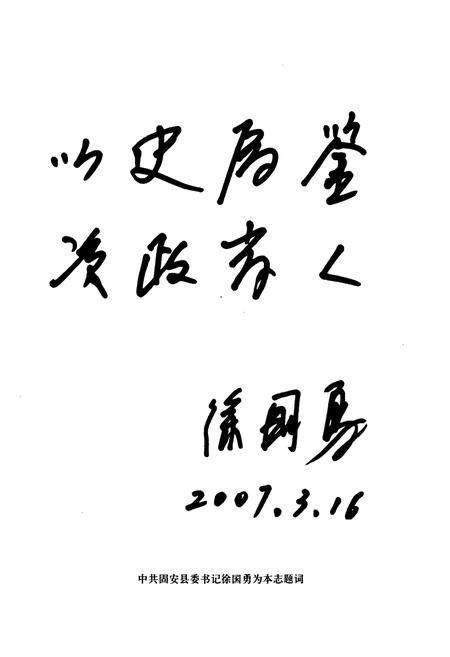 以史为鉴
资政育人
徐国勇
2007.3.16
中共固安县委书记徐国勇为本志题词